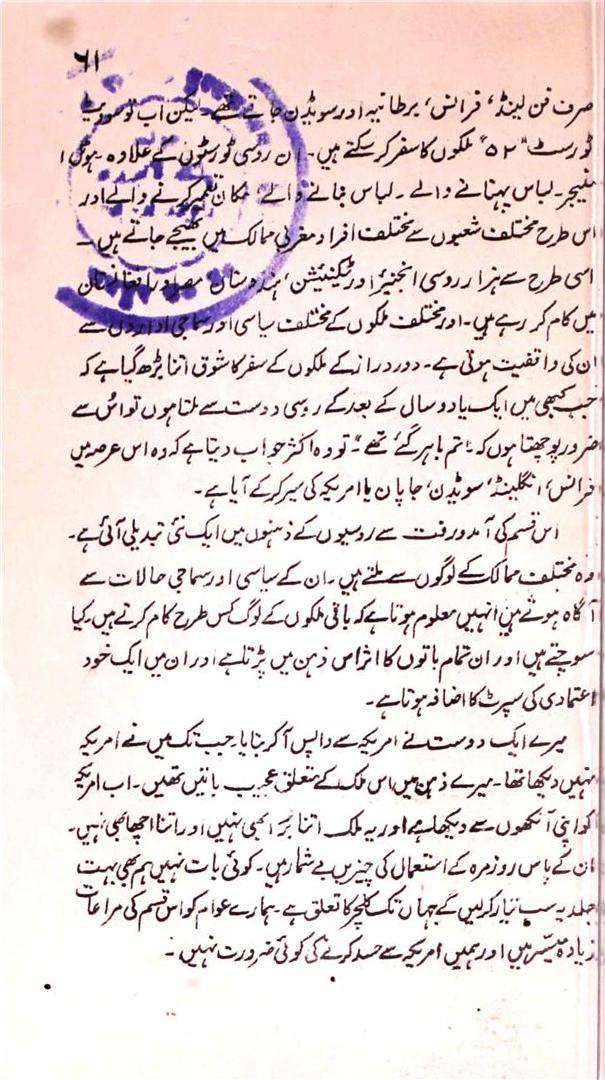 ۶۱
صرف فن لینڈ، فرانس، برطانیہ اور سویڈن جاتے تھے۔ لیکن اب تو سوویٹ
ٹورسٹ "۵۲" ملکوں کا سفر کر سکتے ہیں۔ ان روسی ٹورسٹوں کے علاوہ ہوٹل
منیجر۔ لباس پہنانے والے۔ لباس بنانے والے مکان تعمیر کرنے والے اور
اس طرح مختلف شعبوں سے مختلف افراد مغربی ممالک میں بھیجے جاتے ہیں۔
اسی طرح سے ہزار روسی انجنیئر اور ٹیکنیشن، ہندوستان مصر اور افغانستان
میں کام کر رہے ہیں۔ اور مختلف ملکوں کے مختلف سیاسی اور سماجی اداروں سے
ان کی واقفیت ہوتی ہے۔ دور دراز کے ملکوں کے سفر کا شوق اتنا بڑھ گیا ہے کہ
جب کبھی میں ایک یا دو سال کے بعد کے روسی دوست سے ملتا ہوں تو اس سے
ضرور پوچھتا ہوں کہ "تم باہر گئے تھے"۔ تو وہ اکثر جواب دیتا ہے کہ وہ اس عرصہ میں
فرانس، انگلینڈ، سویڈن، جاپان یا امریکہ کی سیر کر کے آیا ہے۔
اس قسم کی آمد و رفت سے روسیوں کے ذہنوں میں ایک نئی تبدیلی آئی ہے۔
وہ مختلف ممالک کے لوگوں سے ملتے ہیں۔ ان کے سیاسی اور سماجی حالات سے
آگاہ ہوتے ہیں انہیں معلوم ہوتا ہے کہ باقی ملکوں کے لوگ کس طرح کام کرتے ہیں۔ کیا
سوچتے ہیں اور ان تمام باتوں کا اثر اس ذہن میں پڑتا ہے اور ان میں ایک خود
اعتمادی کی سپرٹ کا اضافہ ہوتا ہے۔
میرے ایک دوست نے امریکہ سے واپس آ کر بتایا۔ جب تک میں نے امریکہ
نہیں دیکھا تھا۔ میرے ذہن میں اس ملک کے متعلق عجیب باتیں تھیں۔ اب امریکہ
کو اپنی آنکھوں سے دیکھا ہے اور یہ ملک اتنا برا بھی نہیں اور اتنا اچھا بھی نہیں۔
ان کے پاس روزمرہ کے استعمال کی چیزیں بے شمار ہیں۔ کوئی بات نہیں ہم بھی بہت
جلد یہ سب تیار کر لیں گے جہاں تک کلچر کا تعلق ہے۔ ہمارے عوام کو اس قسم کی مراعات
زیادہ میسّر ہیں اور ہمیں امریکہ سے حسد کرنے کی کوئی ضرورت نہیں۔